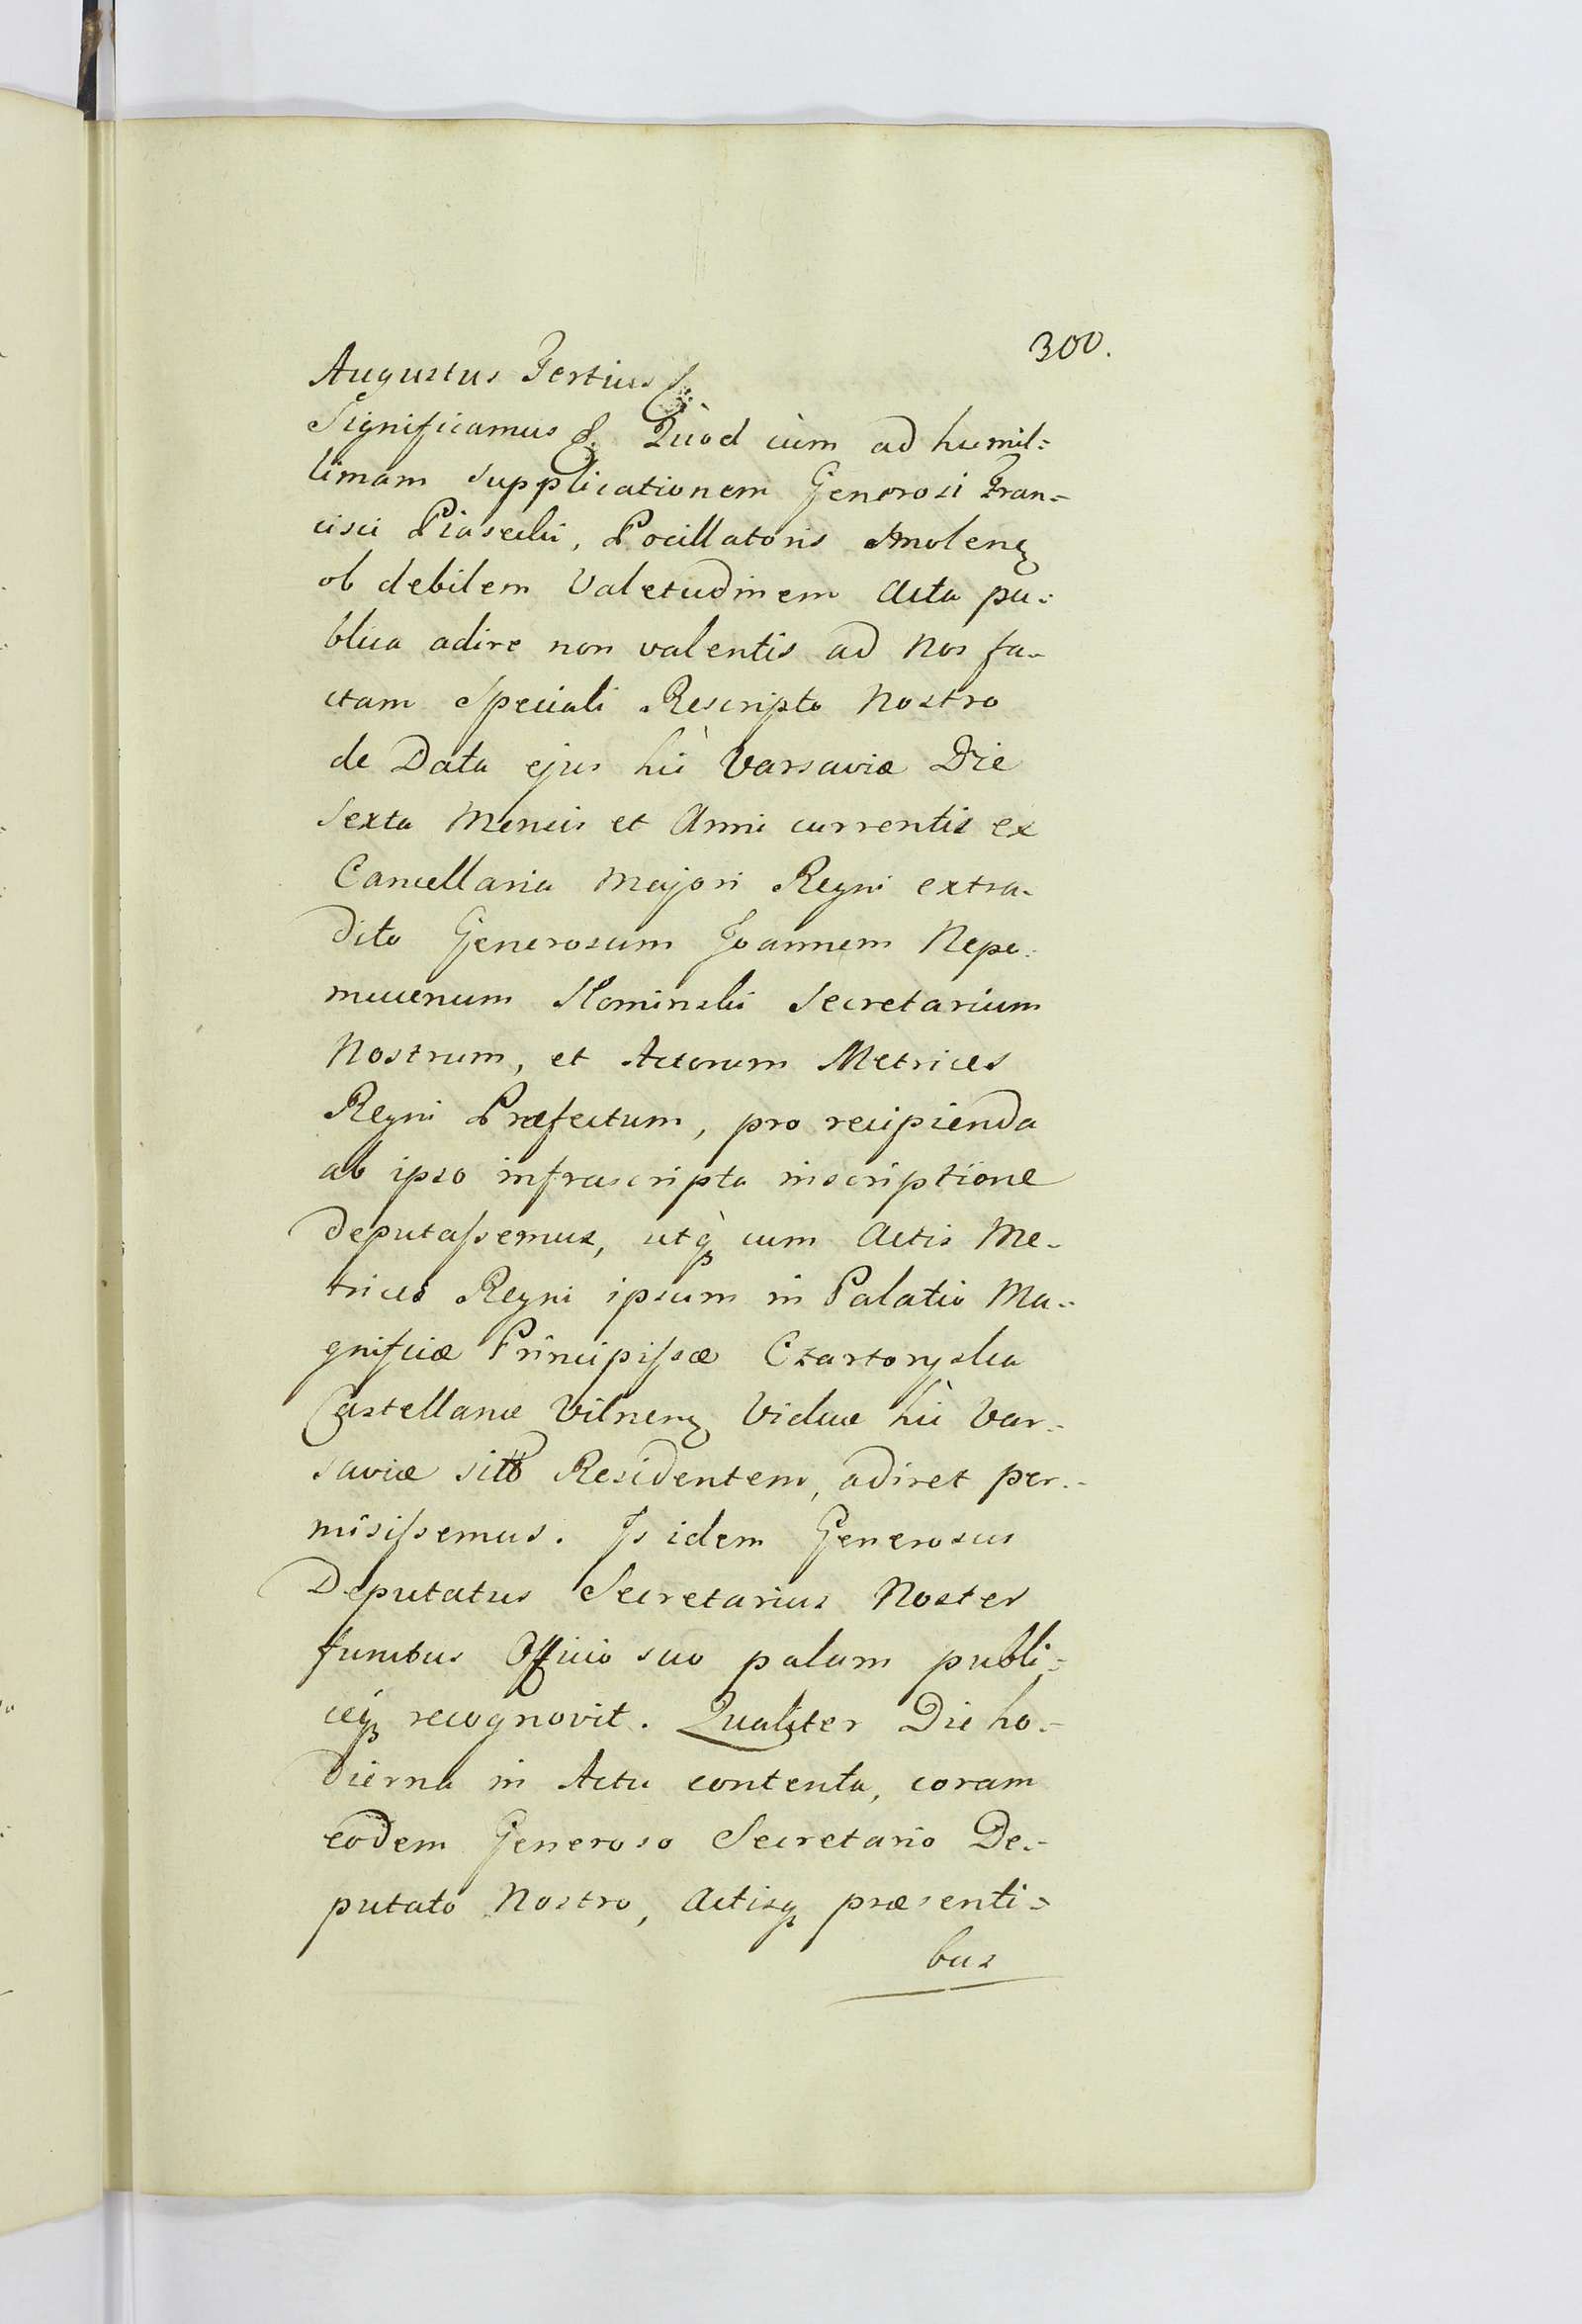 300.
Augustus Tertius &.
Significamus &. Quòd cùm ad humil=
limam supplicationem Generosi Fran=
cisci Piasecki, Pocillatoris Smolenq
ob debilem Valetudinem Acta pu=
blica adire non valentis ad Nos fa-
ctam Speciali Rescripto Nostro
de Data ejus hìc Varsaviæ Die
Sexta Mensis et Anni currentis ex
Cancellaria Majori Regni extra-
dito Generosum Joannem Nepo-
mucenum Slominski Secretarium
Nostrum, et Actorum Metrices
Regni Præfectum, pro recipienda
ab ipso infrascripta inscriptione
deputassemus, utq̀ cum Actis Me-
trices Regni ipsum in Palatio Ma-
gnificæ Principissæ Czartoryska
Castellanæ Vilnenq Viduæ hìc Var-
saviæ sito Residentem, adiret per-
misissemus. Is idem Generosus
Deputatus Secretarius Noster
functus Officio suo palam publi=
ceq́ recognovit. Qualiter Die ho-
dierna in Actu contenta, coram
eodem Generoso Secretario De-
putato Nostro, Actisq præsenti=
bus